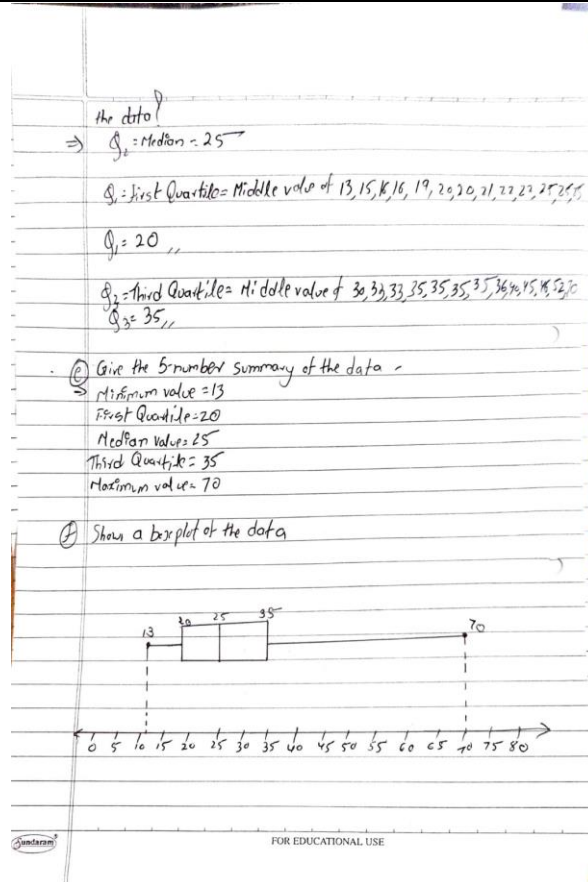 the data?
⇒ Q₂ = Median = 25
Q₁ = First Quartile = Middle value of 13, 15, 16, 16, 19, 20, 20, 21, 22, 22, 25, 25, 25
Q₁ = 20 ,,
Q₃ = Third Quartile = Middle value of 30, 33, 33, 35, 35, 35, 35, 36, 40, 45, 46, 52, 70
Q₃ = 35 ,,
(e) Give the 5-number summary of the data.
⇒ Minimum value = 13
First Quartile = 20
Median value = 25
Third Quartile = 35
Maximum value = 70
(f) Show a boxplot of the data
13 20 25 35 70
0 5 10 15 20 25 30 35 40 45 50 55 60 65 70 75 80
Sundaram FOR EDUCATIONAL USE